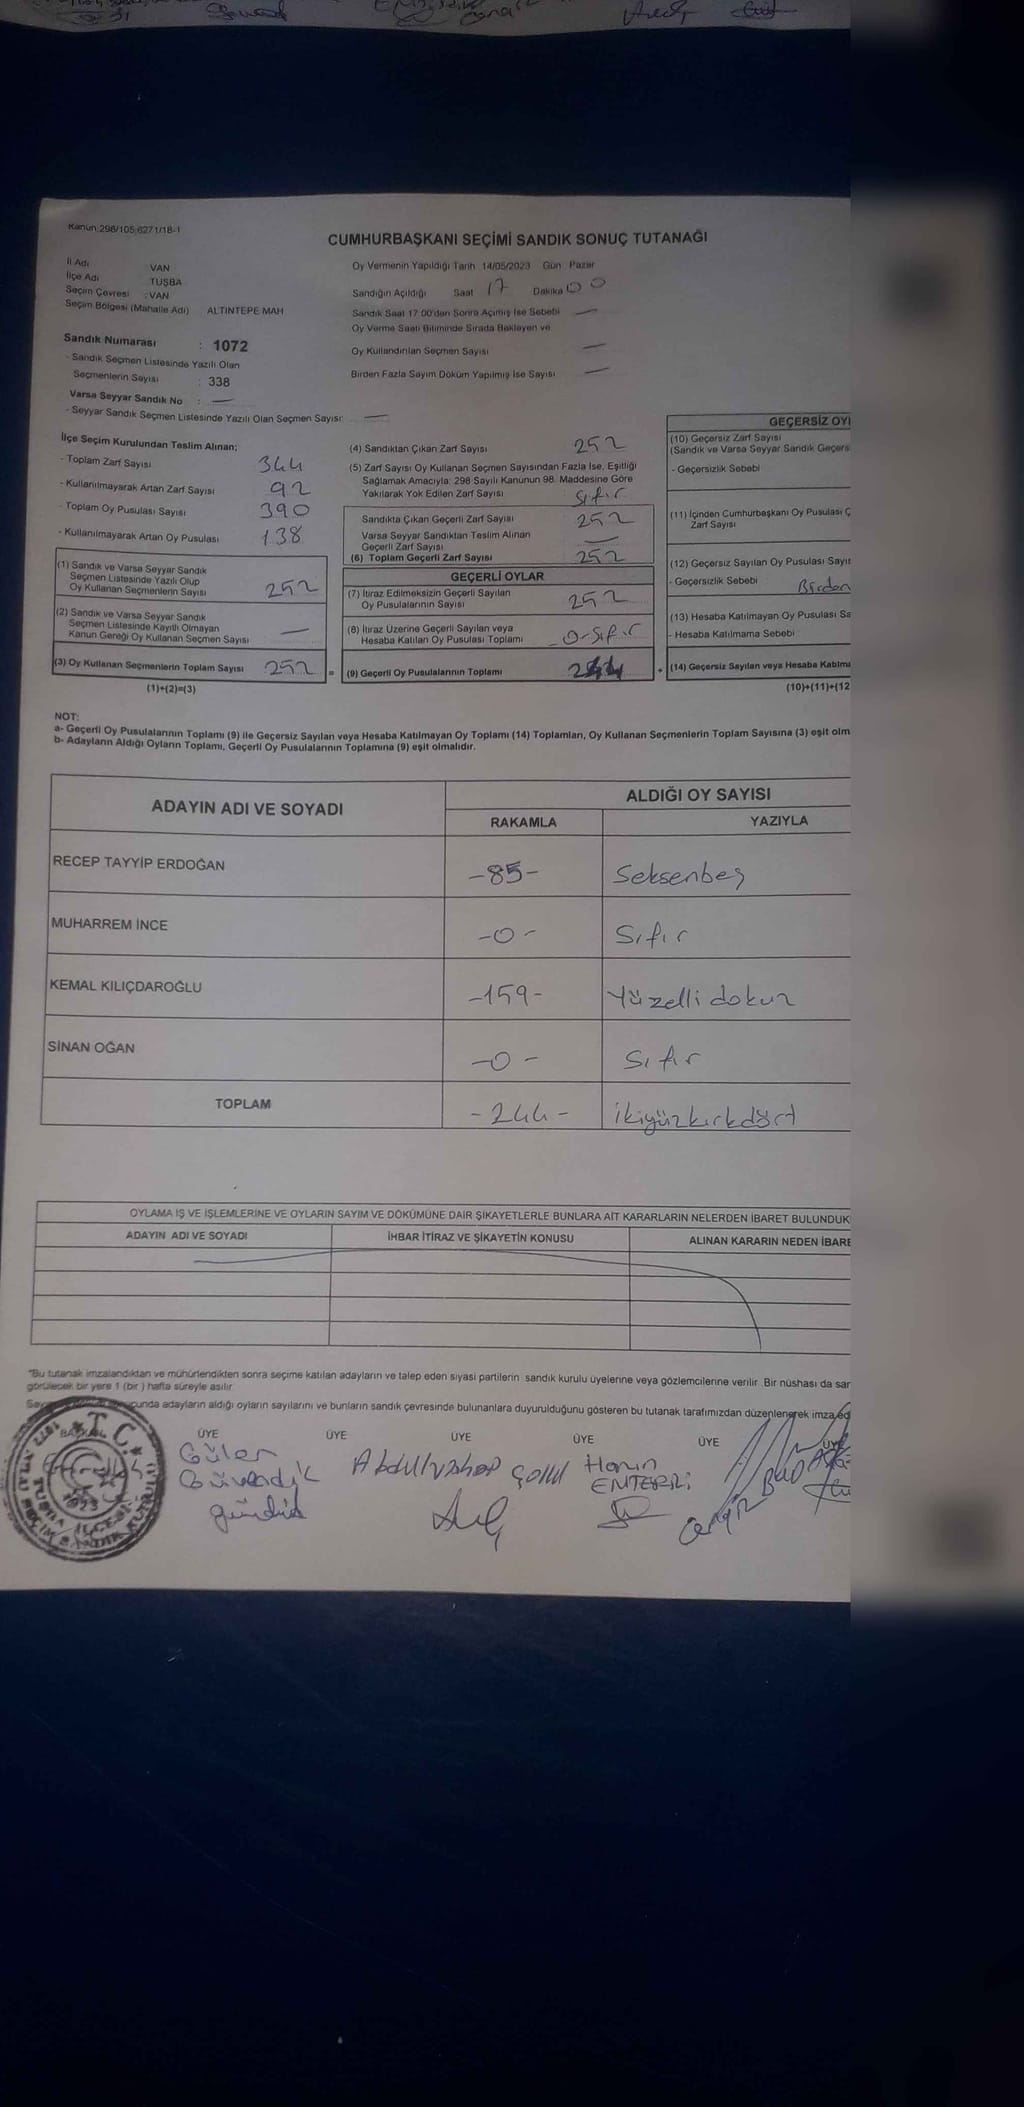 Kanun 298/105;6271/18-1
CUMHURBAŞKANI SEÇİMİ SANDIK SONUÇ TUTANAĞI
İl Adı : VAN
İlçe Adı : TUŞBA
Seçim Çevresi : VAN
Seçim Bölgesi (Mahalle Adı) ALTINTEPE MAH
Oy Vermenin Yapıldığı Tarih 14/05/2023 Gün Pazar
Sandığın Açıldığı Saat 17 Dakika 00
Sandık Saat 17 00'den Sonra Açımış İse Sebebi —
Oy Verme Saati Bitiminde Sırada Bekleyen ve
Oy Kullandırılan Seçmen Sayısı —
Birden Fazla Sayım Döküm Yapılmış İse Sayısı —
Sandık Numarası : 1072
- Sandık Seçmen Listesinde Yazılı Olan
Seçmenlerin Sayısı : 338
Varsa Seyyar Sandık No : —
- Seyyar Sandık Seçmen Listesinde Yazılı Olan Seçmen Sayısı: —
İlçe Seçim Kurulundan Teslim Alınan;
- Toplam Zarf Sayısı 344
- Kullanılmayarak Artan Zarf Sayısı 92
- Toplam Oy Pusulası Sayısı 390
- Kullanılmayarak Artan Oy Pusulası 138
(1) Sandık ve Varsa Seyyar Sandık
Seçmen Listesinde Yazılı Olup
Oy Kullanan Seçmenlerin Sayısı 252
(2) Sandık ve Varsa Seyyar Sandık
Seçmen Listesinde Kayıtlı Olmayan
Kanun Gereği Oy Kullanan Seçmen Sayısı —
(3) Oy Kullanan Seçmenlerin Toplam Sayısı 252
(1)+(2)=(3)
(4) Sandıktan Çıkan Zarf Sayısı 252
(5) Zarf Sayısı Oy Kullanan Seçmen Sayısından Fazla İse, Eşitliği
Sağlamak Amacıyla; 298 Sayılı Kanunun 98. Maddesine Göre
Yakılarak Yok Edilen Zarf Sayısı Sıfır
Sandıkta Çıkan Geçerli Zarf Sayısı 252
Varsa Seyyar Sandıktan Teslim Alınan
Geçerli Zarf Sayısı —
(6) Toplam Geçerli Zarf Sayısı 252
GEÇERLİ OYLAR
(7) İtiraz Edilmeksizin Geçerli Sayılan
Oy Pusulalarının Sayısı 252
(8) İtiraz Üzerine Geçerli Sayılan veya
Hesaba Katılan Oy Pusulası Toplamı 0-Sıfır
= (9) Geçerli Oy Pusulalarının Toplamı 244 +
GEÇERSİZ OYL
(10) Geçersiz Zarf Sayısı
(Sandık ve Varsa Seyyar Sandık Geçers
- Geçersizlik Sebebi
(11) İçinden Cumhurbaşkanı Oy Pusulası Ç
Zarf Sayısı
(12) Geçersiz Sayılan Oy Pusulası Sayıs
- Geçersizlik Sebebi Birden
(13) Hesaba Katılmayan Oy Pusulası Sa
- Hesaba Katılmama Sebebi
(14) Geçersiz Sayılan veya Hesaba Katılma
(10)+(11)+(12
NOT:
a- Geçerli Oy Pusulalarının Toplamı (9) ile Geçersiz Sayılan veya Hesaba Katılmayan Oy Toplamı (14) Toplamları, Oy Kullanan Seçmenlerin Toplam Sayısına (3) eşit olm
b- Adayların Aldığı Oyların Toplamı, Geçerli Oy Pusulalarının Toplamına (9) eşit olmalıdır.
ADAYIN ADI VE SOYADI
ALDIĞI OY SAYISI
RAKAMLA YAZIYLA
RECEP TAYYİP ERDOĞAN -85- Seksenbeş
MUHARREM İNCE -0- Sıfır
KEMAL KILIÇDAROĞLU -159- Yüzelli dokuz
SİNAN OĞAN -0- Sıfır
TOPLAM -244- İkiyüzkırkdört
OYLAMA İŞ VE İŞLEMLERİNE VE OYLARIN SAYIM VE DÖKÜMÜNE DAİR ŞİKAYETLERLE BUNLARA AİT KARARLARIN NELERDEN İBARET BULUNDUK
ADAYIN ADI VE SOYADI İHBAR İTİRAZ VE ŞİKAYETİN KONUSU ALINAN KARARIN NEDEN İBARE
*Bu tutanak imzalandıktan ve mühürlendikten sonra seçime katılan adayların ve talep eden siyasi partilerin sandık kurulu üyelerine veya gözlemcilerine verilir. Bir nüshası da san
görülecek bir yere 1 (bir ) hafta süreyle asılır.
adayların aldığı oyların sayılarını ve bunların sandık çevresinde bulunanlara duyurulduğunu gösteren bu tutanak tarafımızdan düzenlenerek imza ed
ÜYE ÜYE ÜYE ÜYE ÜYE ÜYE
T.C.
Güler
Güvendik
gündüz
Abdulvahap
Harun
Cengiz